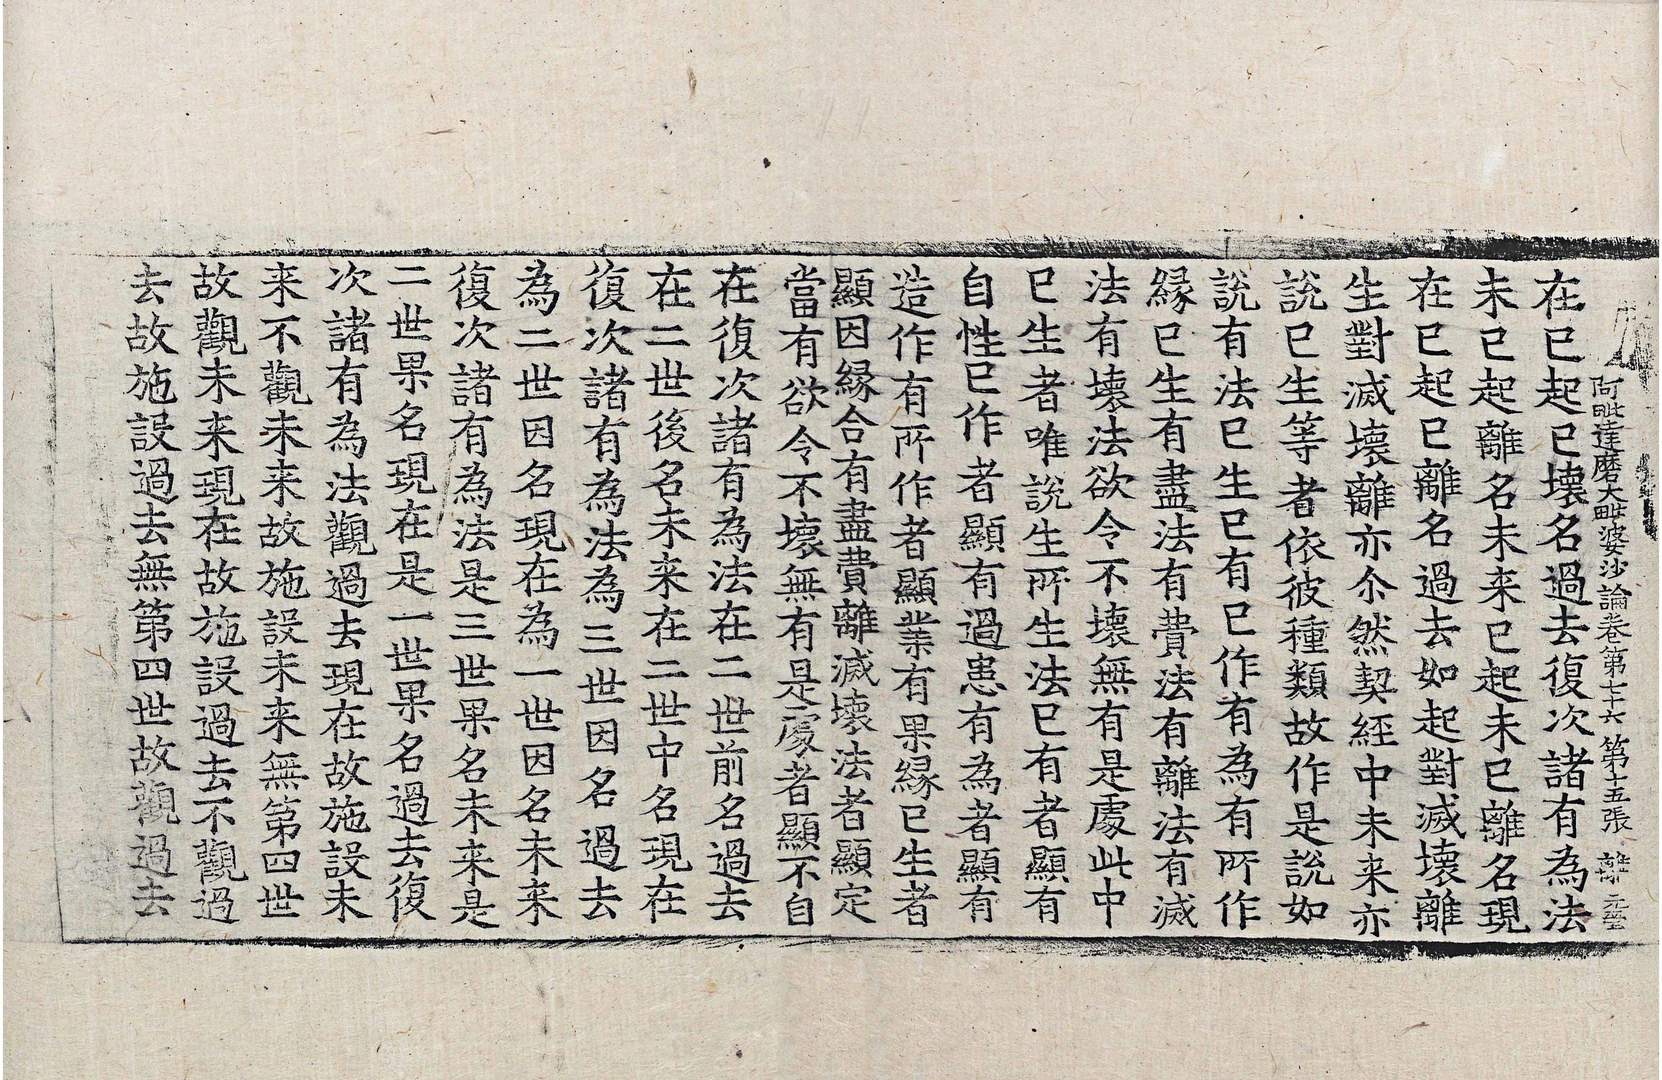 阿毗達磨大毗婆沙論卷第七十六 第十五張 離
在已起已壞名過去復次諸有為法
未已起離名未来已起未已離名現
在已起已離名過去如起對滅壞離
生對滅壞離亦尒然契經中未来亦
說已生等者依彼種類故作是說如
說有法已生已有已作有為有所作
縁已生有盡法有費法有離法有滅
法有壞法欲令不壞無有是處此中
已生者唯說生所生法已有者顯有
自性已作者顯有過患有為者顯有
造作有所作者顯業有果縁已生者
顯因縁合有盡費離滅壞法者顯定
當有欲令不壞無有是處者顯不自
在復次諸有為法在二世前名過去
在二世後名未来在二世中名現在
復次諸有為法為三世因名過去
為二世因名現在為一世因名未来
復次諸有為法是三世果名未来是
二世果名現在是一世果名過去復
次諸有為法觀過去現在故施設未
来不觀未来故施設未来無第四世
故觀未来現在故施設過去不觀過
去故施設過去無第四世故觀過去